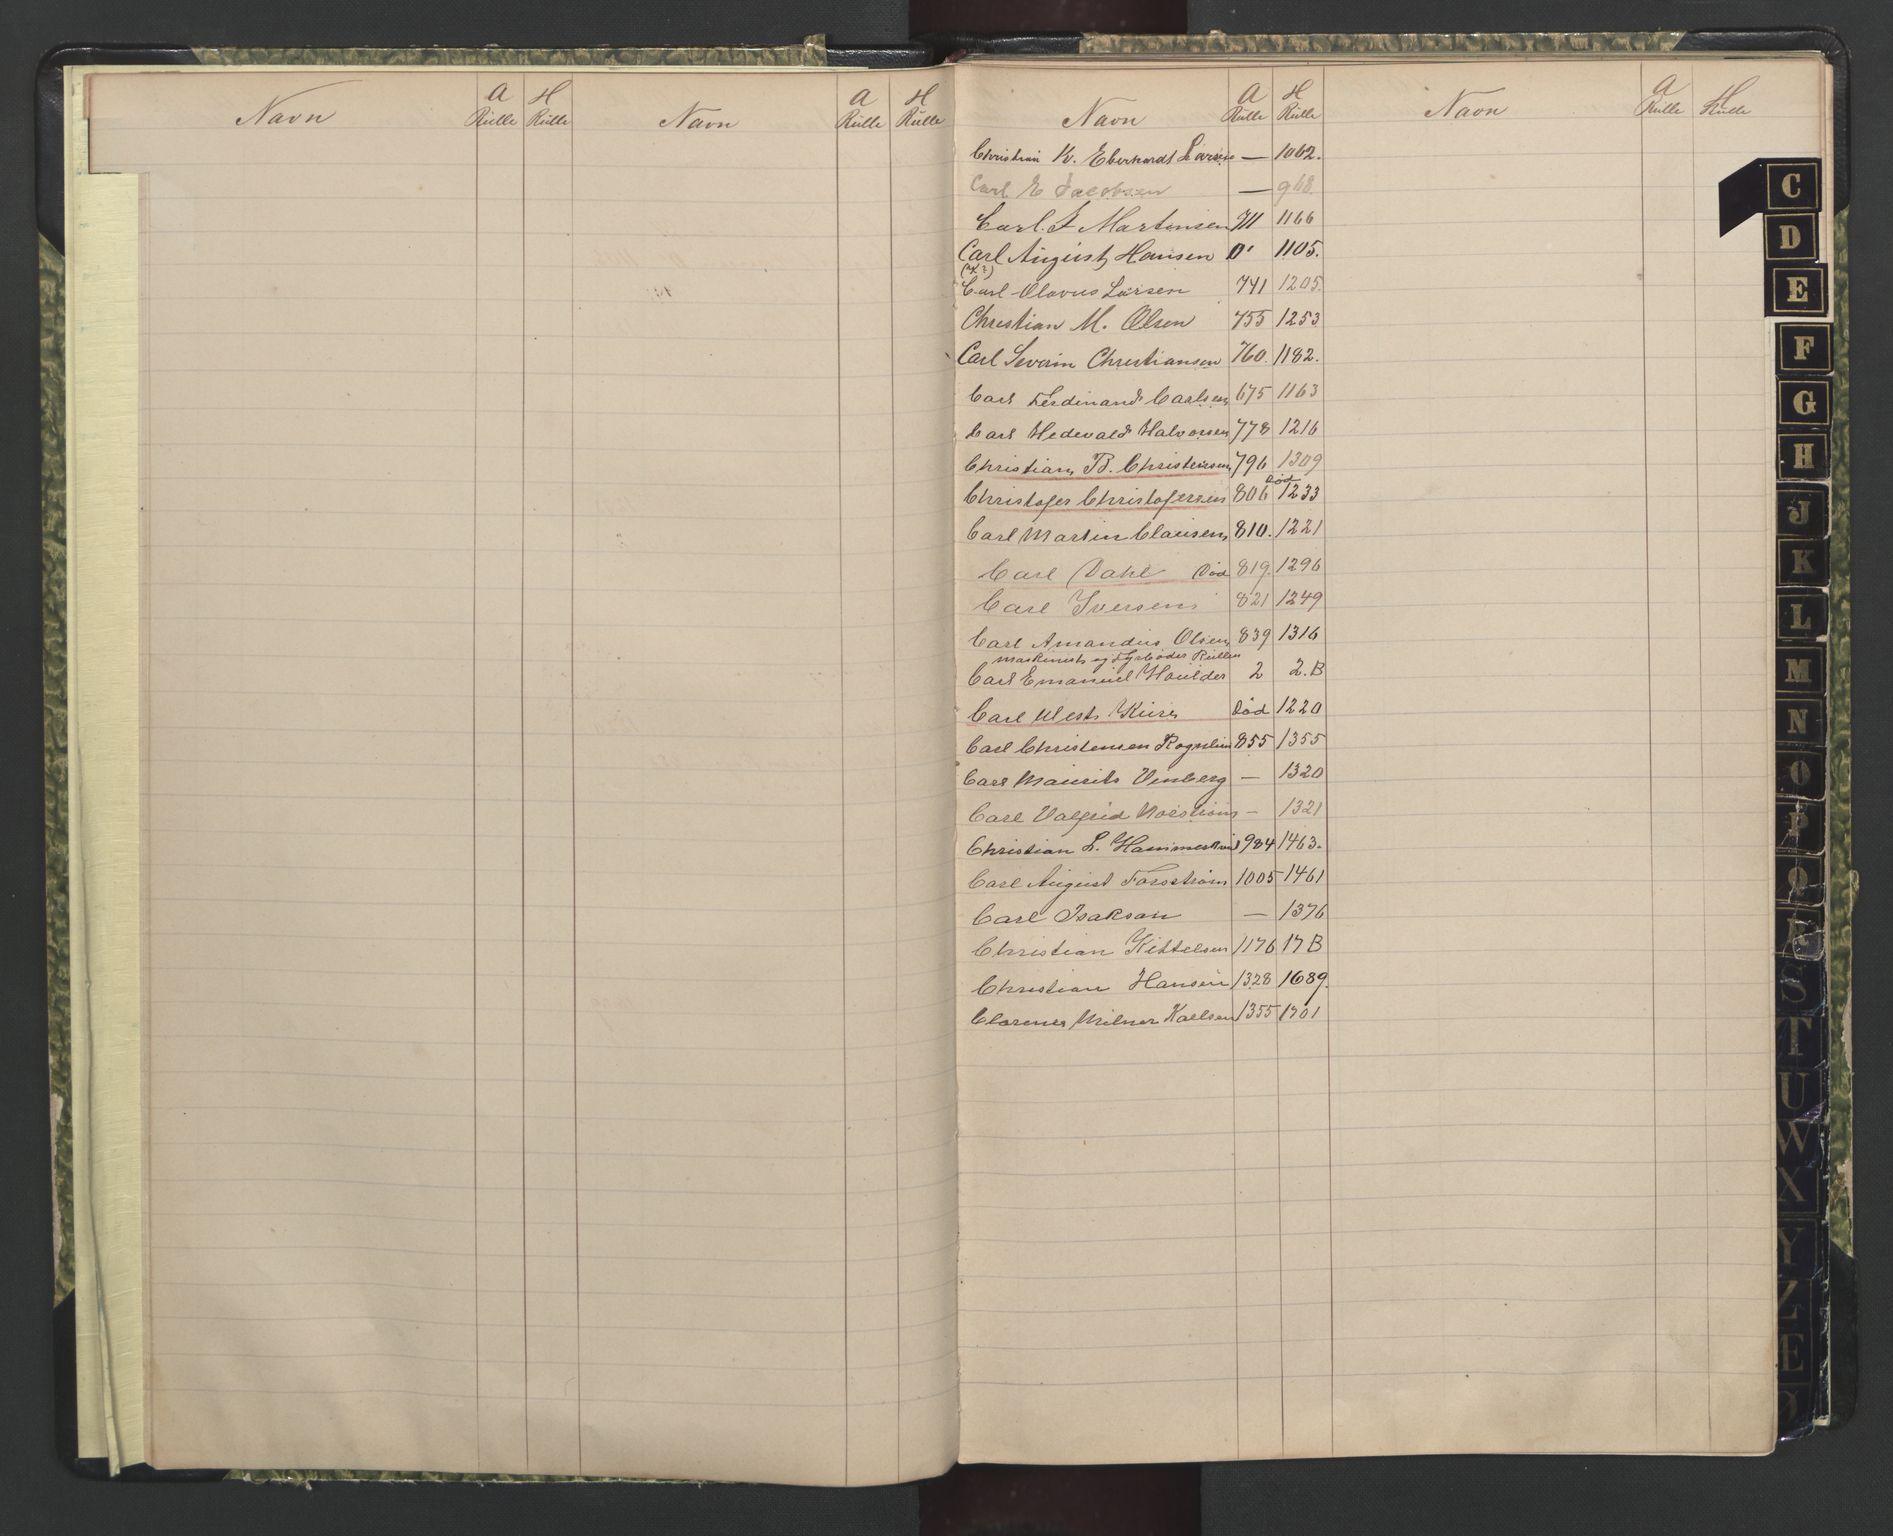 Navn A Rulle H Rulle Navn A Rulle H Rulle
Navn A Rulle H Rulle Navn A Rulle H Rulle
Christian K. Eberhardt Larsen — 1062.
Carl E Jacobsen — 968
Carl. F Martinsen 711 1166
Carl August Hansen 0' 1105.
Carl Olavus Larsen 741 1205.
Christian M. Olsen 755 1253
Carl Severin Christiansen 760. 1182.
Carl Ferdinand Carlsen 675 1163
Carl Hedevald Halvorsen 778 1216
Christian B. Christensen 796 1309
Død
Christofer Christofersen 806 1233
Carl Martin Clausen 810. 1221
Carl Dahl Død 819. 1296
Carl Iversen 821 1249
Carl Amandus Olsen 839 1316
Maskinist og Fyrbøder Rullen
Carl Emanuel Houlder 2 2.B
Carl West Kiise Død 1220
Carl Christensen Rognlien 855 1355
Carl Maurits Vinberg — 1320
Carl Valfrid — 1321
Christian L. Hammer 984 1463.
Carl August Forsström 1005 1461
Carl Isakson — 1376
Christian Kittelsen 1176 17 B
Christian Hansen 1328 1689.
Clarence Milner Karlsen 1355 1701
C
D
E
F
G
H
J
K
L
M
N
O
P
Q
R
S
T
U
W
X
Y
Z
Æ
Ø